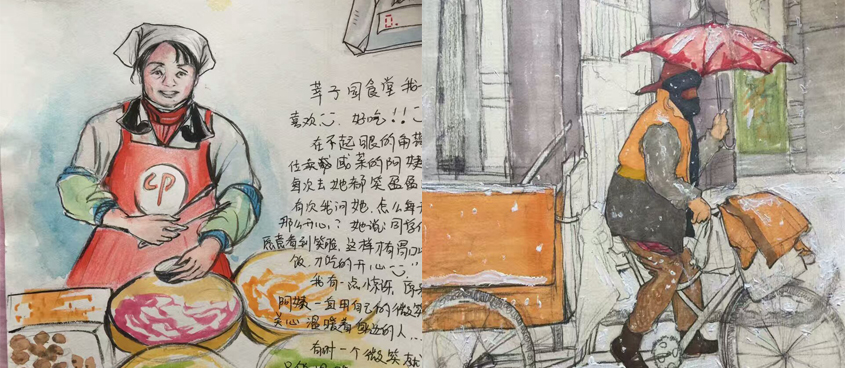 0.
莘子园食堂 我
喜欢 好吃!!
在不起眼的角落
咸菜的阿姨
每次去她都笑盈盈
有次我问她,怎么每
那么开心?她说:同学
愿意看到笑脸,这样才有胃口
饭,才吃的开心
我有一点惊讶,原
阿姨一直用自己的微笑
关心温暖着身边的人...
有时一个微笑就
cp